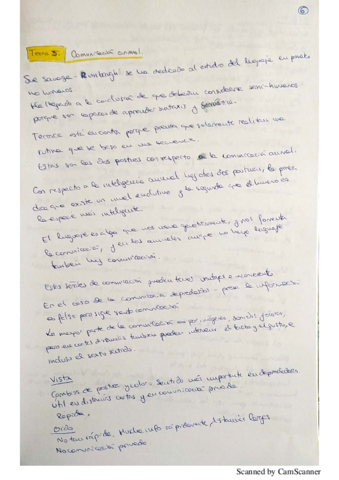 6
Tema 5: Comunicación animal.
Sue Savage-Rumbaugh se ha dedicado al estudio del lenguaje en primates
no humanos
Ha llegado a la conclusión de que deberían considerarse semi-humanos
porque son capaces de aprender sintaxis y semántica.
Terrace está en contra, porque piensa que solamente realizan una
rutina que se basa en una secuencia.
Estas son las dos posturas con respecto a la comunicación animal.
Con respecto a la inteligencia animal hay otras dos posturas, la primera
dice que existe un nivel evolutivo y la segunda que el humano es
la especie más inteligente.
El lenguaje es algo que nos viene genéticamente y nos fomenta
la comunicación, y en los animales aunque no haya lenguaje
también hay comunicación.
Estas señales de comunicación pueden tener ventajas e inconvenientes
En el caso de la comunicación depredador - presa la información
es falsa pero sigue siendo comunicación
La mayor parte de la comunicación es por imágenes, sonidos y olores,
pero en cortas distancias también pueden intervenir el tacto y el gusto, e
incluso el sexto sentido.
Vista
Cambios de postura y color. Sentido más importante en depredadores
Útil en distancias cortas y en comunicación privada
Rápida.
Oído
No tan rápida. Mucha info rápidamente, distancias largas
No comunicación privada
Scanned by CamScanner